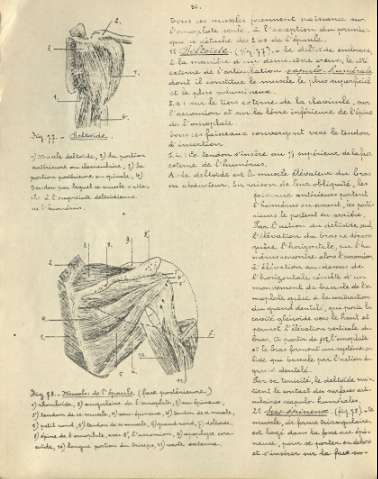 Tous ces muscles prennent naissance sur
l'omoplate seule, à l'exception du premier
qui se détache des 2 os de l'épaule.
1) Deltoïde (fig 77). - Le deltoïde embrasse,
à la manière d'un demi-cône creux, le côté
externe de l'articulation scapulo-humérale
dont il constitue le muscle le plus superficiel
et le plus volumineux.
sur le tiers externe de la clavicule, sur
l'acromion et sur la lèvre inférieure de l'épine
de l'omoplate.
Tous ces faisceaux convergent vers le tendon
d'insertion.
Ce tendon s'insère au 1/3 supérieur de la face
externe de l'humérus.
A: le deltoïde est le muscle élévateur du bras
ou abducteur. En raison de leur obliquité, les
faisceaux antérieurs portent
l'humérus en avant, les posté-
rieurs le portent en arrière.
Par l'action du deltoïde seul
l'élévation du bras ne dépasse
guère l'horizontale, sur l'hu-
L'élévation au-dessus de
l'horizontale résulte d'un
mouvement de bascule de l'o-
moplate grâce à la contraction
du grand dentelé, qui porte la
cavité glénoïde vers le haut et
permet l'élévation verticale du
bras. A partir de l'omoplate
et le bras forment un système so-
lide qui bascule par l'action du
grand dentelé.
Par sa tonicité, le deltoïde main-
tient le contact des surfaces arti-
culaires scapulo-humérales.
2) Sus-épineux (fig 78). - Ce
muscle, de forme triangulaire,
est logé dans la fosse sus-épi-
neuse, pour se porter en dehors
et s'insérer sur la face su-
Fig 77. - Deltoïde
1) Muscle deltoïde, 2) sa portion
antérieure ou claviculaire, 3) sa
portion postérieure ou spinale, 4)
tendon par lequel ce muscle s'atta-
che à l'empreinte deltoïdienne
de l'humérus.
Fig 78. - Muscles de l'épaule (face postérieure)
1) rhomboïde, 2) angulaire de l'omoplate, 3) sus-épineux,
3') tendon de ce muscle, 4) sous-épineux, 4') tendon de ce muscle,
5) petit rond, 5') tendon de ce muscle, 6) grand rond, 7) deltoïde,
8) épine de l'omoplate, avec 8', l'acromion, 9) apophyse cora-
coïde, 10) longue portion du triceps, 11) vaste externe.